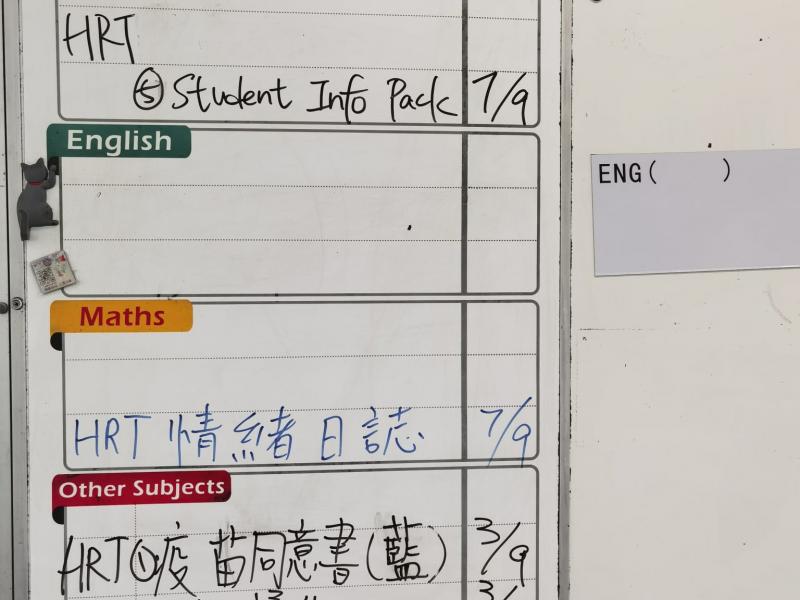 HRT
⑤ Student Info Pack 7/9
English
ENG( )
Maths
HRT 情緒日誌 7/9
Other Subjects
HRT①疫苗同意書(藍) 3/9